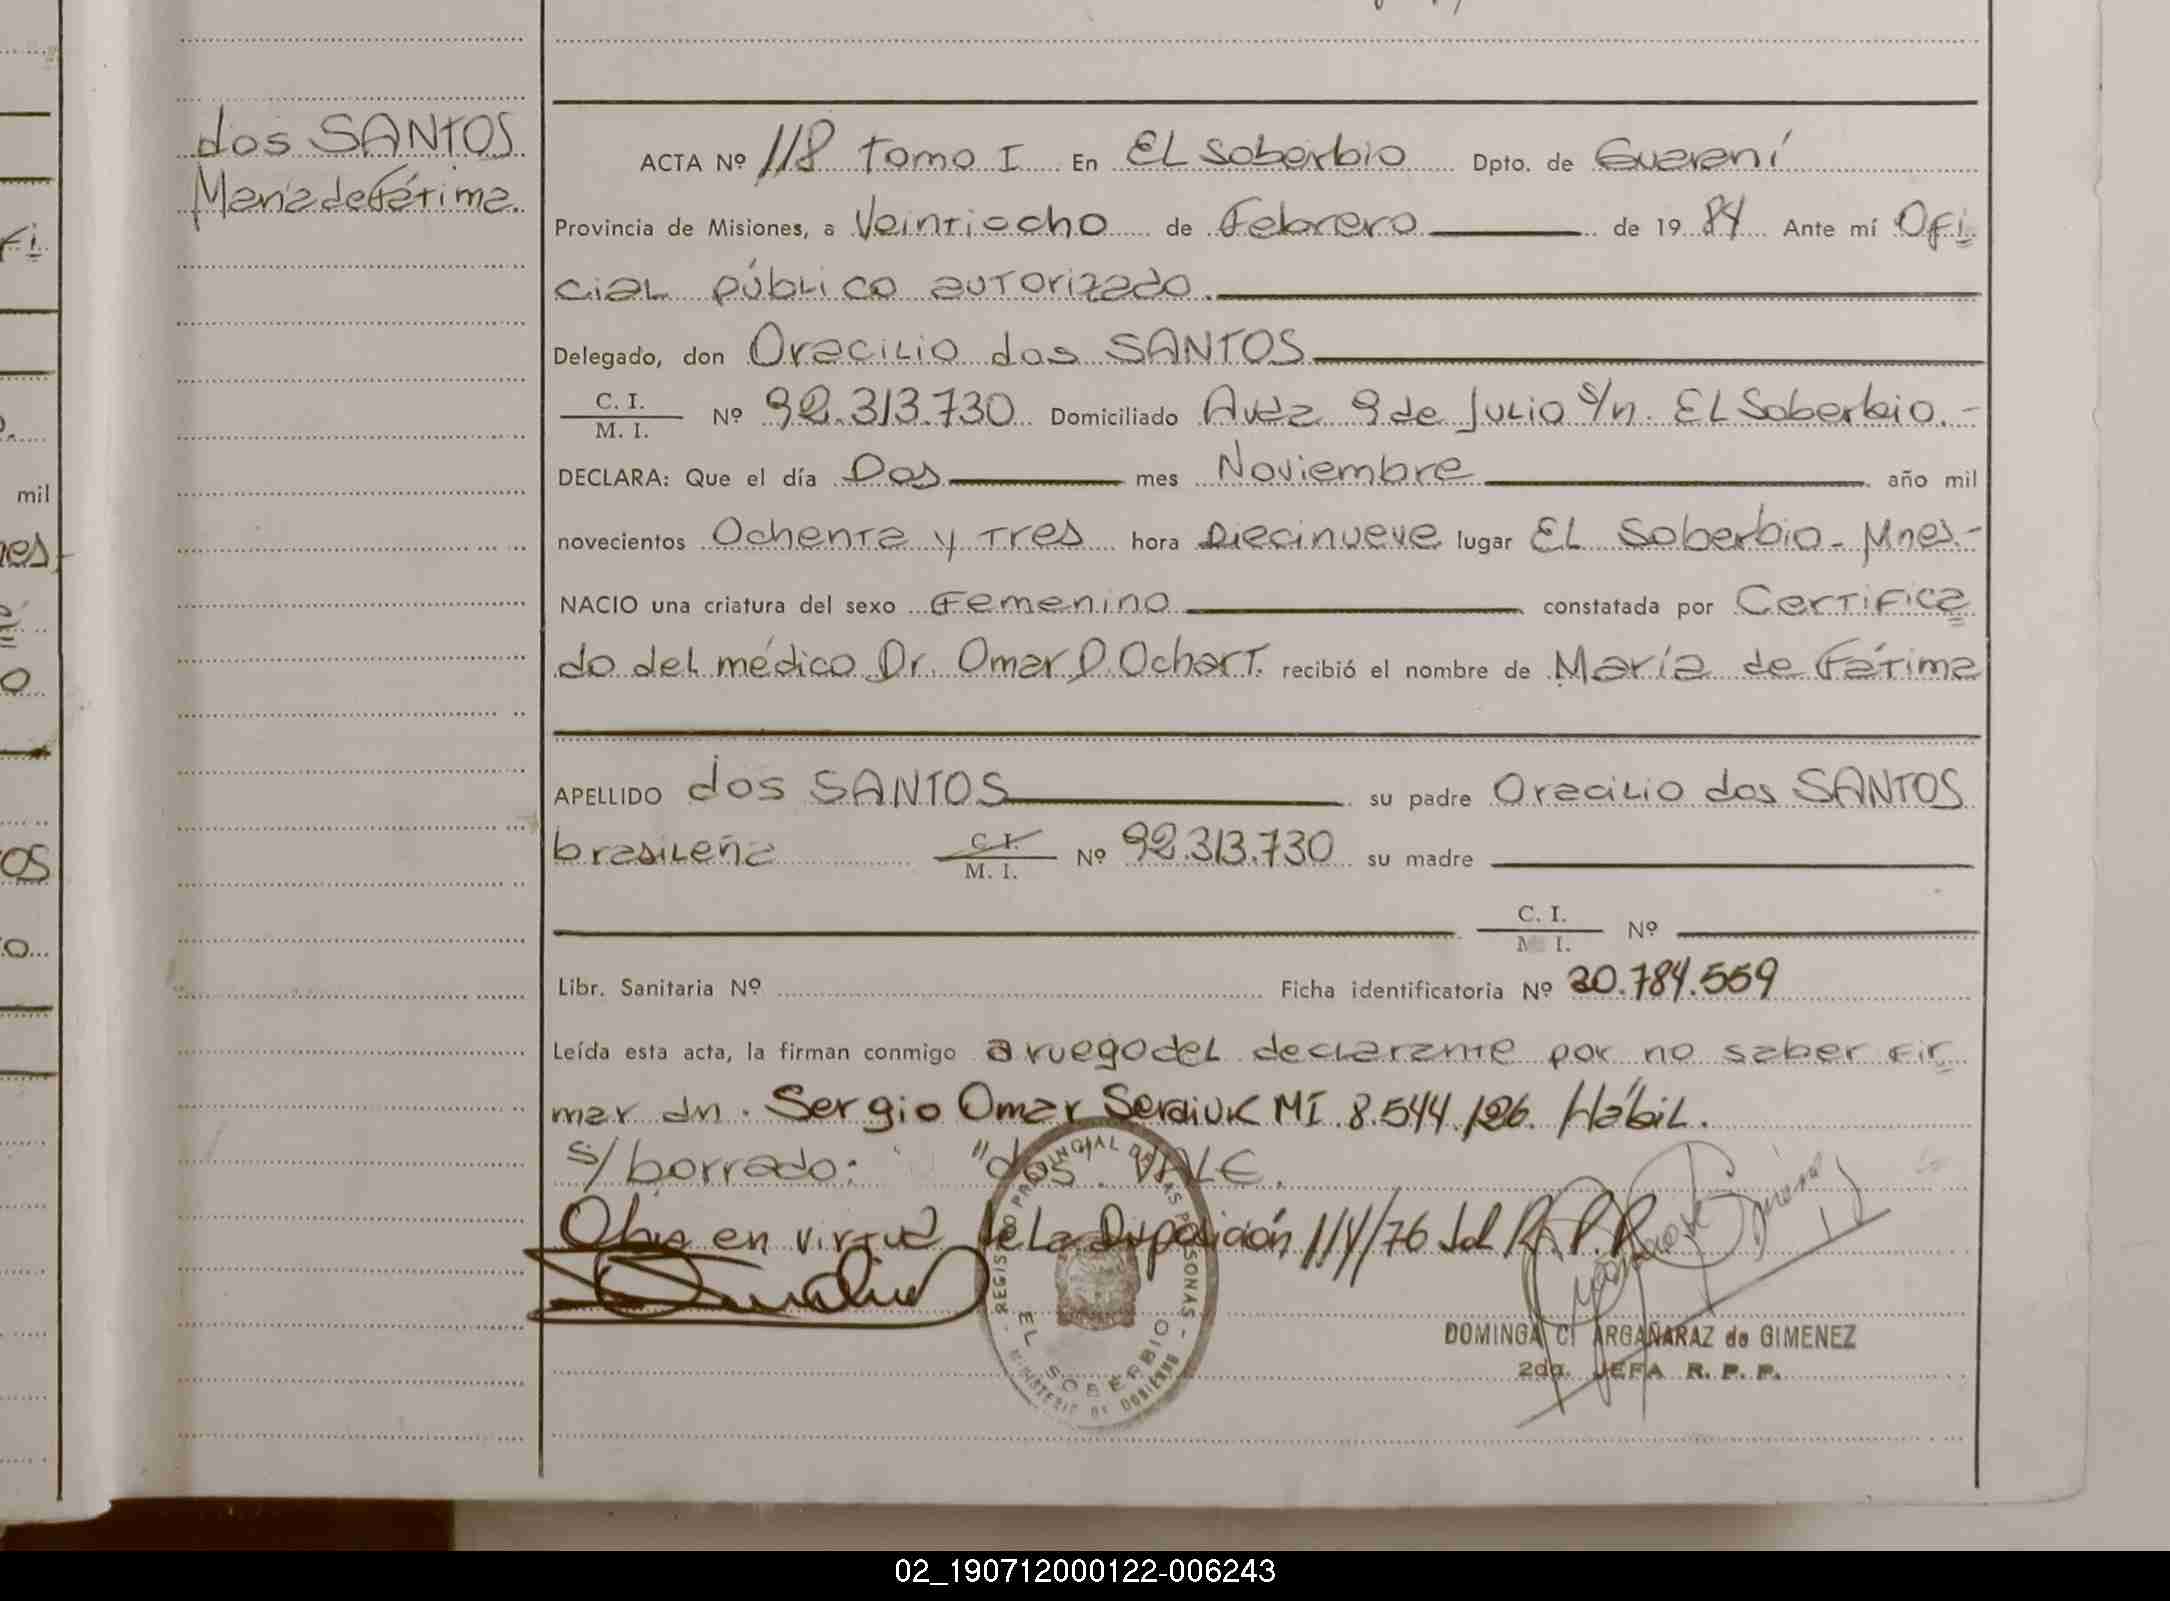 dos SANTOS
María de Fátima.
ACTA Nº 118 Tomo I En EL Soberbio Dpto. de Guaraní
Provincia de Misiones, a Veintiocho de Febrero de 19 84 Ante mí Ofi
cial público autorizado.
Delegado, don Oracilio dos SANTOS
C. I.
M. I.
Nº 92.313.730 Domiciliado Avda 9 de Julio s/n. EL Soberbio.-
DECLARA: Que el día Dos mes Noviembre año mil
novecientos Ochenta y Tres hora Diecinueve lugar EL Soberbio - Mnes.-
NACIO una criatura del sexo Femenino constatada por Certifica
do del médico Dr. Omar D. Ochart. recibió el nombre de María de Fátima
APELLIDO dos SANTOS su padre Oracilio dos SANTOS
brasileña C. I. M. I. Nº 92.313.730 su madre
C. I.
M. I.
Nº
Libr. Sanitaria Nº Ficha identificatoria Nº 30.784.559
Leída esta acta, la firman conmigo a ruego del declarante por no saber fir
mar dn. Sergio Omar Serdiuk MI 8.544.126. Hábil.
s/borrado: "dos". VALE.
en virtud de La Disposición 114/76 del R.P.P.
REGISTRO PROVINCIAL DE LAS PERSONAS
EL SOBERBIO
MINISTERIO DE GOBIERNO
DOMINGA C. ARGAÑARAZ de GIMENEZ
2da. JEFA R. P. P.
mil
02_190712000122-006243